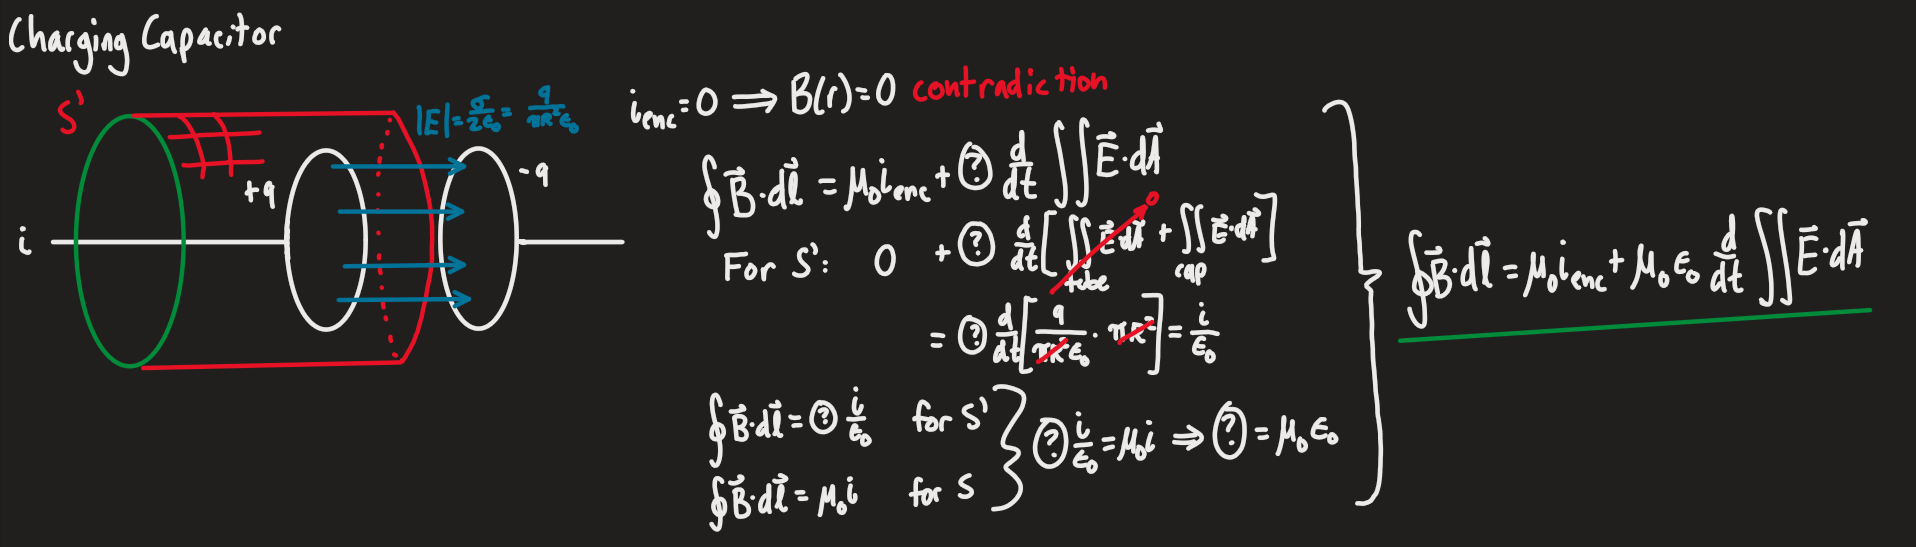 Charging Capacitor
S'
|E| = σ/2ε₀ = q/πR²ε₀
+q
-q
i
i_enc = 0 ⟹ B(r) = 0 contradiction
∮ B⃗·dl⃗ = μ₀i_enc + (?) d/dt ∬ E⃗·dA⃗
For S': 0 + (?) d/dt [ ∬ E⃗·dA⃗ + ∬ E⃗·dA⃗ ]
0
tube cap
= (?) d/dt [ q/πR²ε₀ · πR² ] = i/ε₀
∮ B⃗·dl⃗ = (?) i/ε₀ for S'
∮ B⃗·dl⃗ = μ₀i for S
(?) i/ε₀ = μ₀i ⟹ (?) = μ₀ε₀
∮ B⃗·dl⃗ = μ₀i_enc + μ₀ε₀ d/dt ∬ E⃗·dA⃗